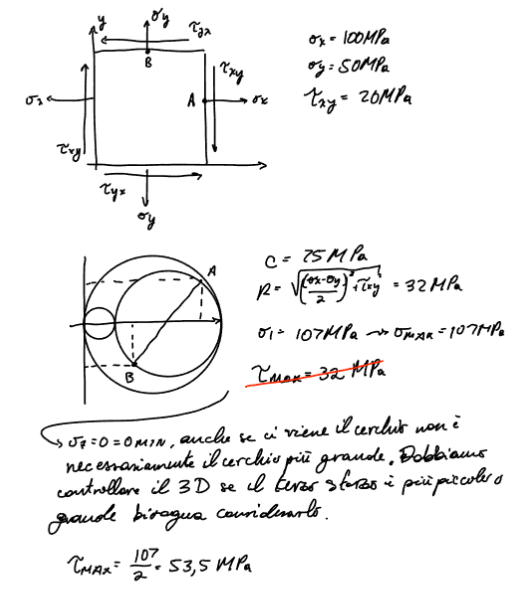 y
σy
τyx
σx = 100MPa
B
τxy
σy = 50MPa
σx
A
σx
τxy = 20MPa
τxy
τyx
σy
A
C = 75 MPa
R = √((σx-σy)/2)² + τxy² = 32MPa
σ1 = 107MPa → σMAX = 107MPa
B
τMax = 32 MPa
→ σz = 0 = σMIN, anche se ci viene il cerchio non è
necessariamente il cerchio più grande. Dobbiamo
controllare il 3D se il terzo sforzo è più piccolo o
grande bisogna considerarlo.
τMAX = 107/2 = 53,5 MPa